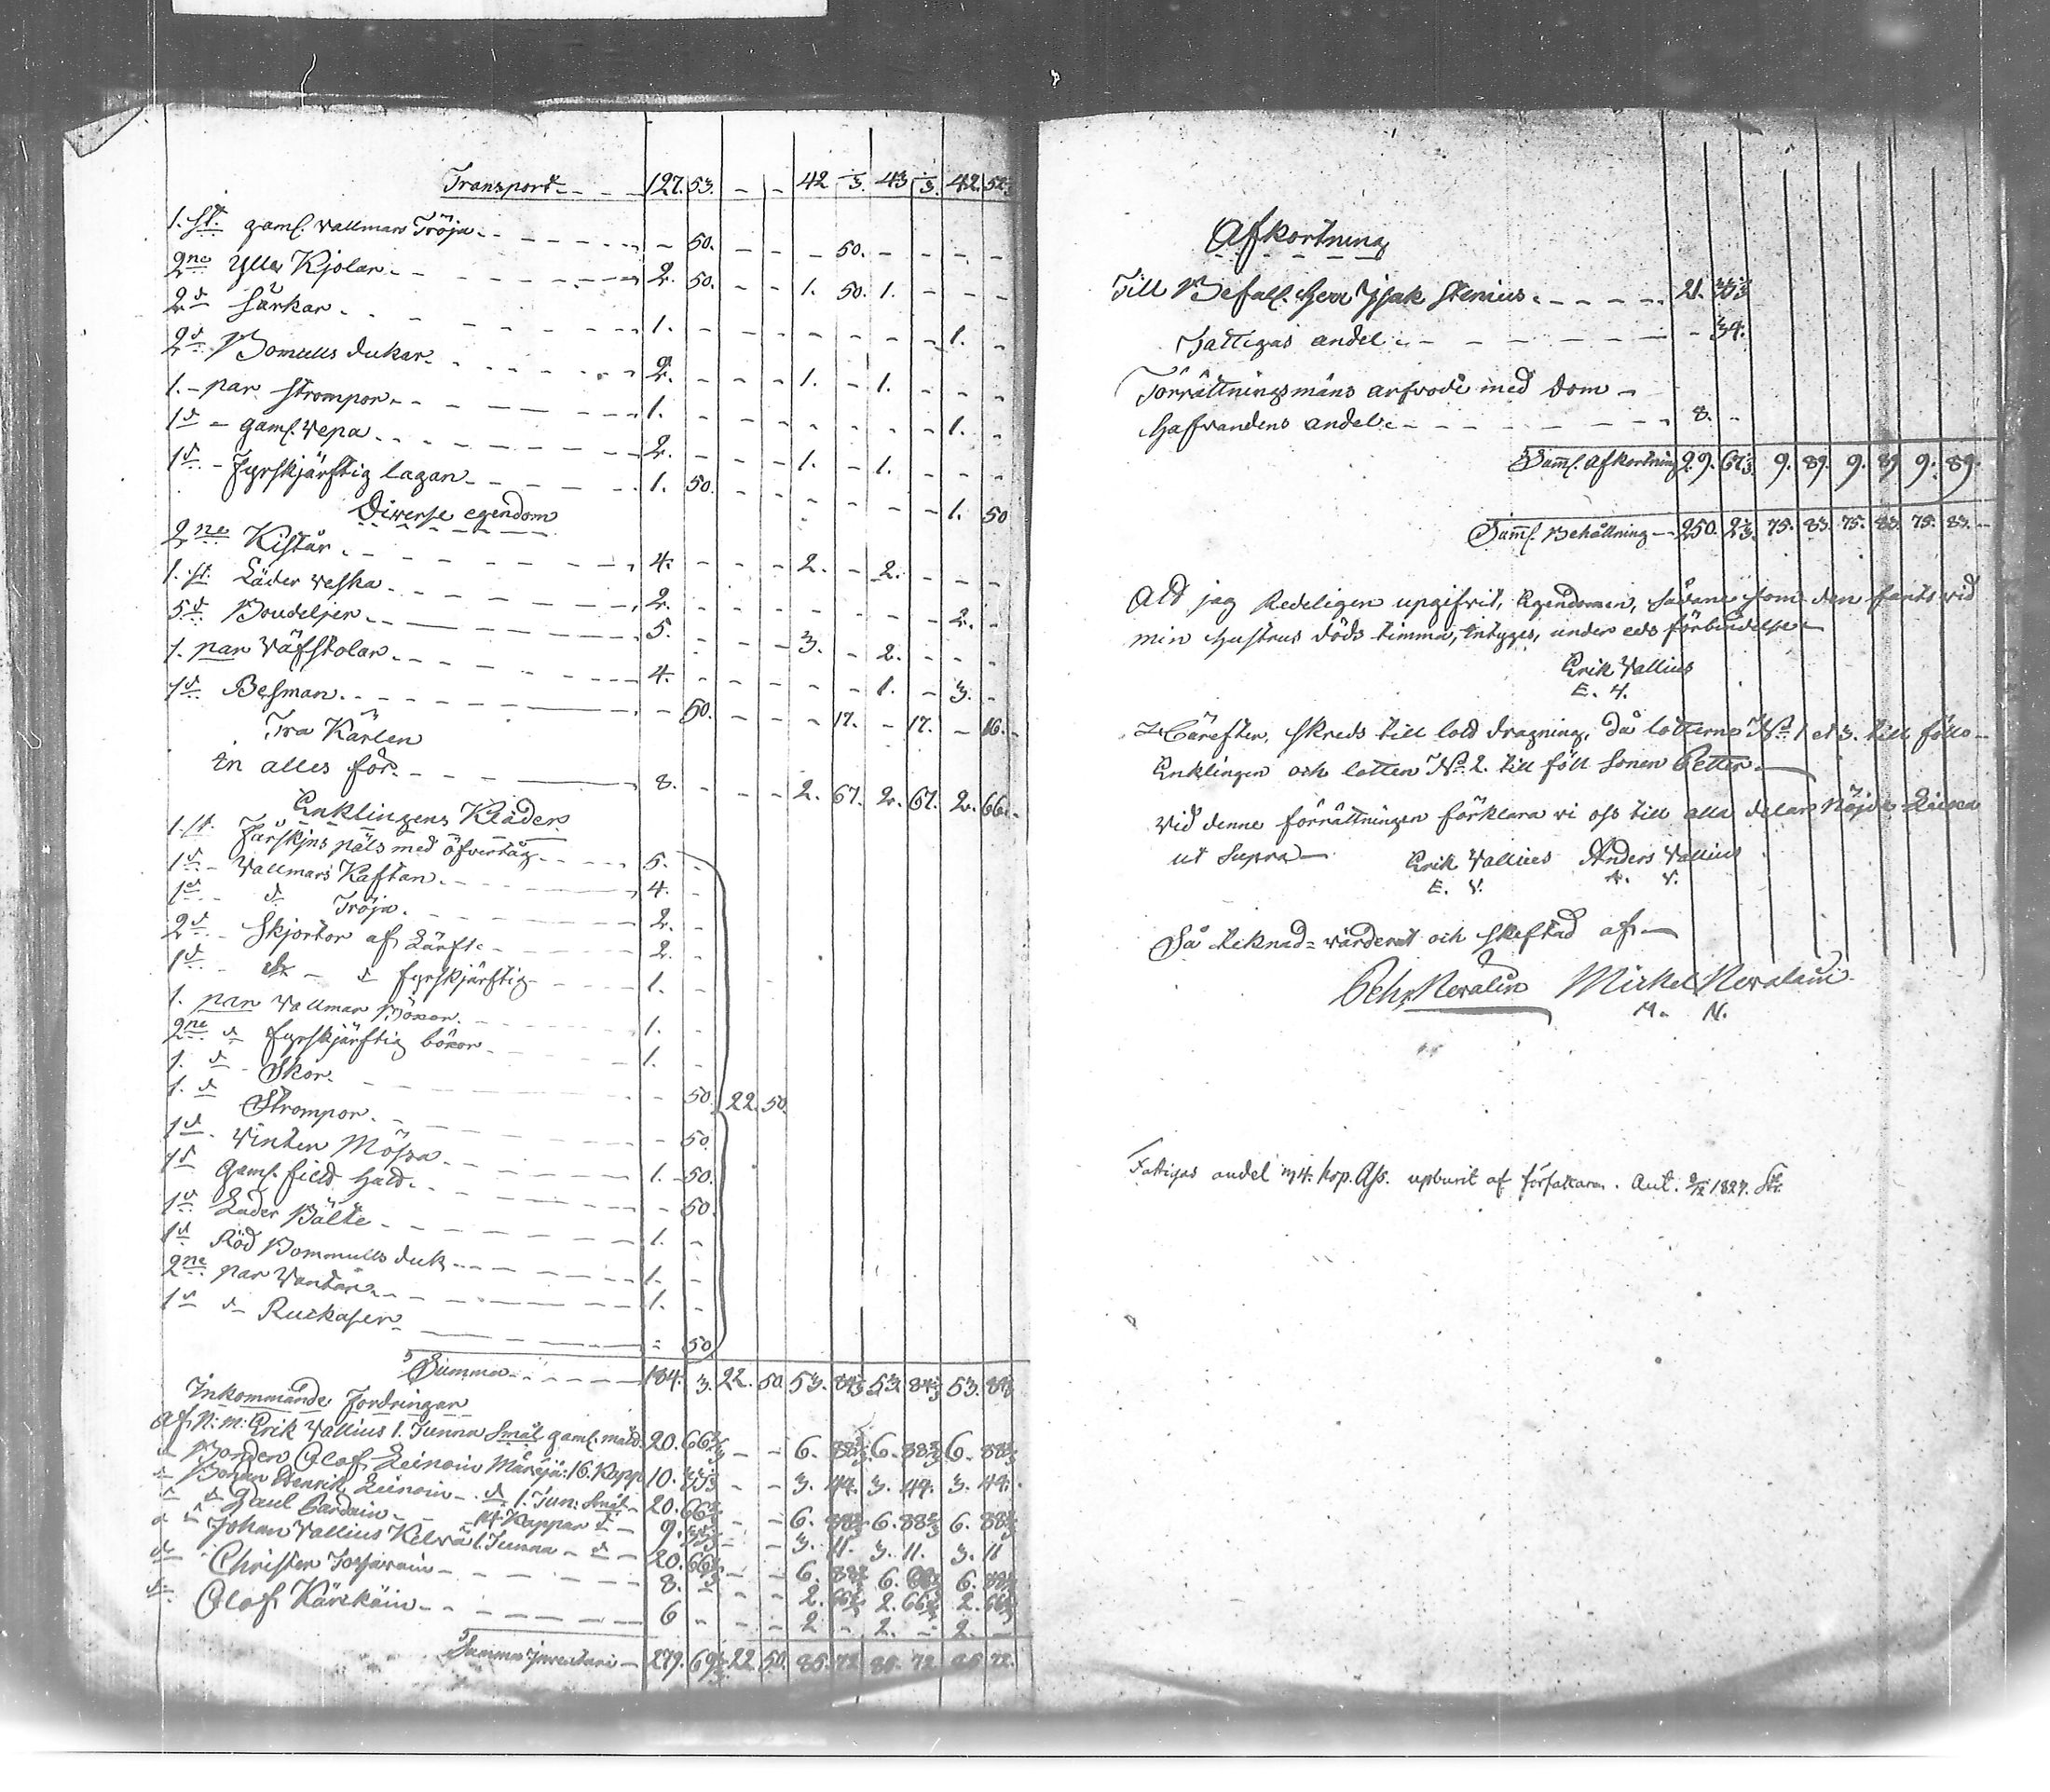 Transport 127. 53. - - 42 ⅓. 43 ⅓. 42. 52⅓
1. st. gaml. vallmars Tröja - 50. - - - 50. - - - -
2ne Ylla Kjolar 2. 50. - - 1. 50. 1. - - -
2 d Särkar 1. - - - - - - - 1. -
2 d Bomulls dukar 2. - - - 1. - 1. - - -
1. par strompor 1. - - - - - - - 1. -
1 d gaml. vepa 2. - - - 1. - 1. - - -
1 d Fyrskjärftig lagan 1. 50. - - - - - - 1. 50
Diverse egendom
2ne Kistår 4. - - - 2. - 2. - - -
1. st. Läder veska 2. - - - - - - - 2. -
5 d Boudeljer 5. - - - 3. - 2. - - -
1. par Väfstolar 4. - - - - - 1. - 3. -
1 d Besman - 50. - - - 17. - 17. - 16.
Tra Kärlen
in alles för 8. - - - 2. 67. 2. 67. 2. 66.
Enklingens Kläder
1. st. Fårskjns päls med öfvertåg 5. -
1 d Vallmars Kaftan 4. -
1 d d Tröja 2. -
2 d Skjortor af Lärft 2. -
1 d d fyrskjärftig 1. -
1. par Vallmar Böxor 1. -
2ne d fyrskjärftig böxor 1. -
1. d Skor - 50. 22. 50.
1. d Strompor - 50.
1 d Vinter Mössa 1. 50.
1 d Gaml. field hald - 50.
1 d Läder Bälte 1. -
1 d Röd Bommulls duk 1. -
2ne par Vantar 1. -
1 d d Ruckaser - 50
Summa 184. 3. 22. 50. 53. 84⅓ 53. 84⅓ 53. 84⅓
Inkommande Fordringar
Af N: m: Erik Vallius 1. Tunna Smål gaml. måld 20. 66⅔ - - 6. 88⅔ 6. 88⅔ 6. 88⅔
d Bonden Olof Leinoin 16. Kapp 10. 33⅓ - - 3. 44. 3. 44. 3. 44.
d Bonden Henrik Leinoin d 1. Tun: Smål 20. 66⅔ - - 6. 88⅔ 6. 88⅔ 6. 88⅔
d d Paul 14 Kappar d 9. 33⅓ - - 3. 11. 3. 11. 3. 11
d d Johan Vallius Kelvä 1. Tunna d 20. 66⅔ - - 6. 88⅔ 6. 88⅔ 6. 88⅔
d Christer 8. - - - 2. 66⅔ 2. 66⅔ 2. 66⅔
d Olof Kärkäin 6 - - - 2 - 2. - 2. -
Summa Inventari 279. 69⅔ 22. 50. 85. 72 85. 72 85. 72.
Afkortning
Till Befall. Herr Isak Stenius 21. 33⅓
Fattigas andel - 34.
Förrättningsmäns arfvode med Dom
Hafvandens andel 8. -
Sam̄l. Afkortning 29. 67⅓ 9. 89. 9. 89 9. 89.
Sam̄l. Behållning 250. 2⅓. 75. 83. 75. 83. 75. 83.
Att jag Redeligen upgifvit, Egendomen, sådane som den fants vid
min Hustrus döds timma, intyges, under eds förbindelse
Erik Vallius
E. V.
Härefter, skreds till lold dragning, då lotterne No. 1 et 3. till föllo
Enklingen och lotten No. 2. till föll Sonen Petter
Vid denne förrättningen förklara vi oss till alla delar Nöjde
ut Supra Erik Vallius Anders Vallius
E. V. A. V.
Så teknad värderat och skeftad af
Pehr Nevalin Mickel Nevalain
M. N.
Fattigas andel 34. kop. Ass. upburit af författaren. Aut. 2/12 1827.